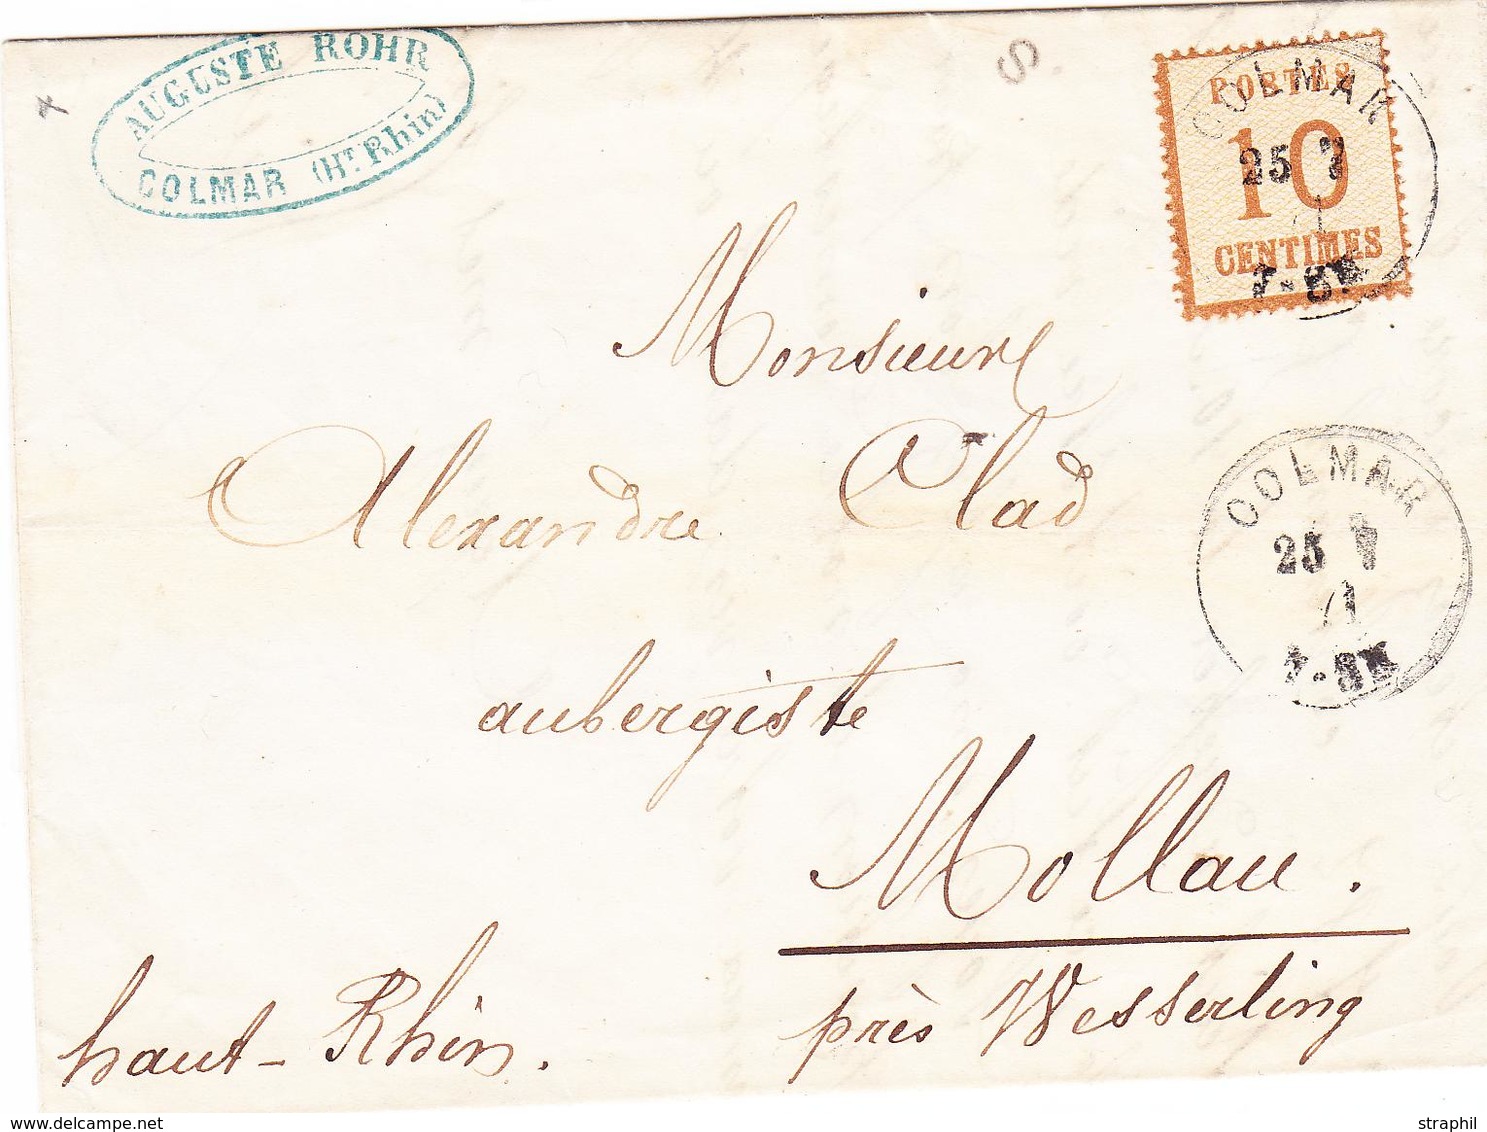 AUGUSTE ROHR
COLMAR (Ht Rhin)
S
POSTES
10
CENTIMES
COLMAR
25 7
71
7-8N
Monsieur
Alexandre Clad
COLMAR
25 7
71
7-8N
aubergiste
Mollau.
près Wesserling
haut-Rhin.
delcampe.net
straphil